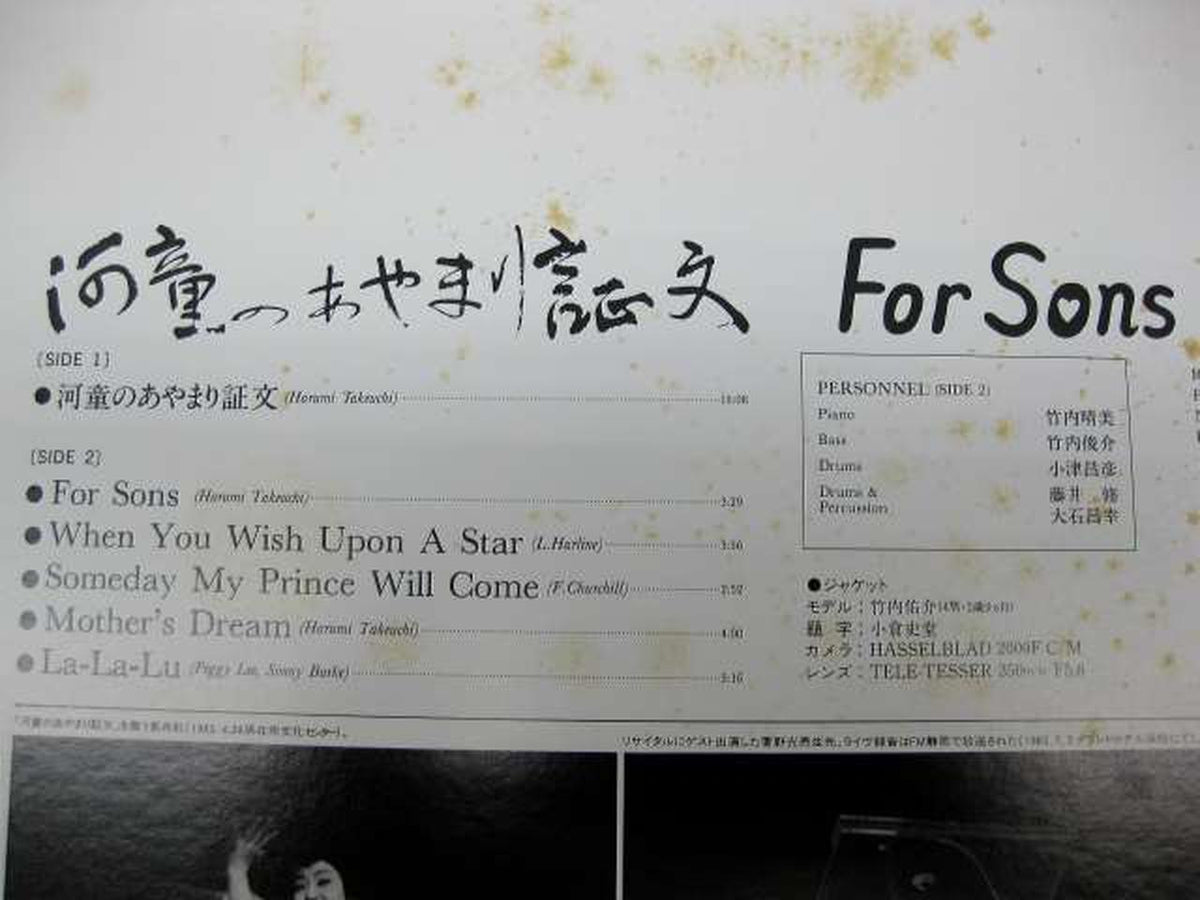 河童のあやまり証文 For Sons
[SIDE 1]
●河童のあやまり証文 (Harumi Takeuchi)
[SIDE 2]
●For Sons (Harumi Takeuchi) 3:29
●When You Wish Upon A Star (L.Harline) 3:56
●Someday My Prince Will Come (F.Churchill) 7:52
●Mother's Dream (Harumi Takeuchi) 4:00
●La-La-Lu (Peggy Lee, Sonny Burke) 3:16
PERSONNEL (SIDE 2)
Piano 竹内晴美
Bass 竹内俊介
Drums 小津昌彦
Drums & Percussion 藤井 修
大石昌幸
●ジャケット
モデル:竹内佑介
題 字:小倉史堂
カメラ:HASSELBLAD 2000F C/M
レンズ:TELE-TESSER 350mm F5.6
リサイタルにゲスト出演した
ライヴ録音はFM静岡で放送された